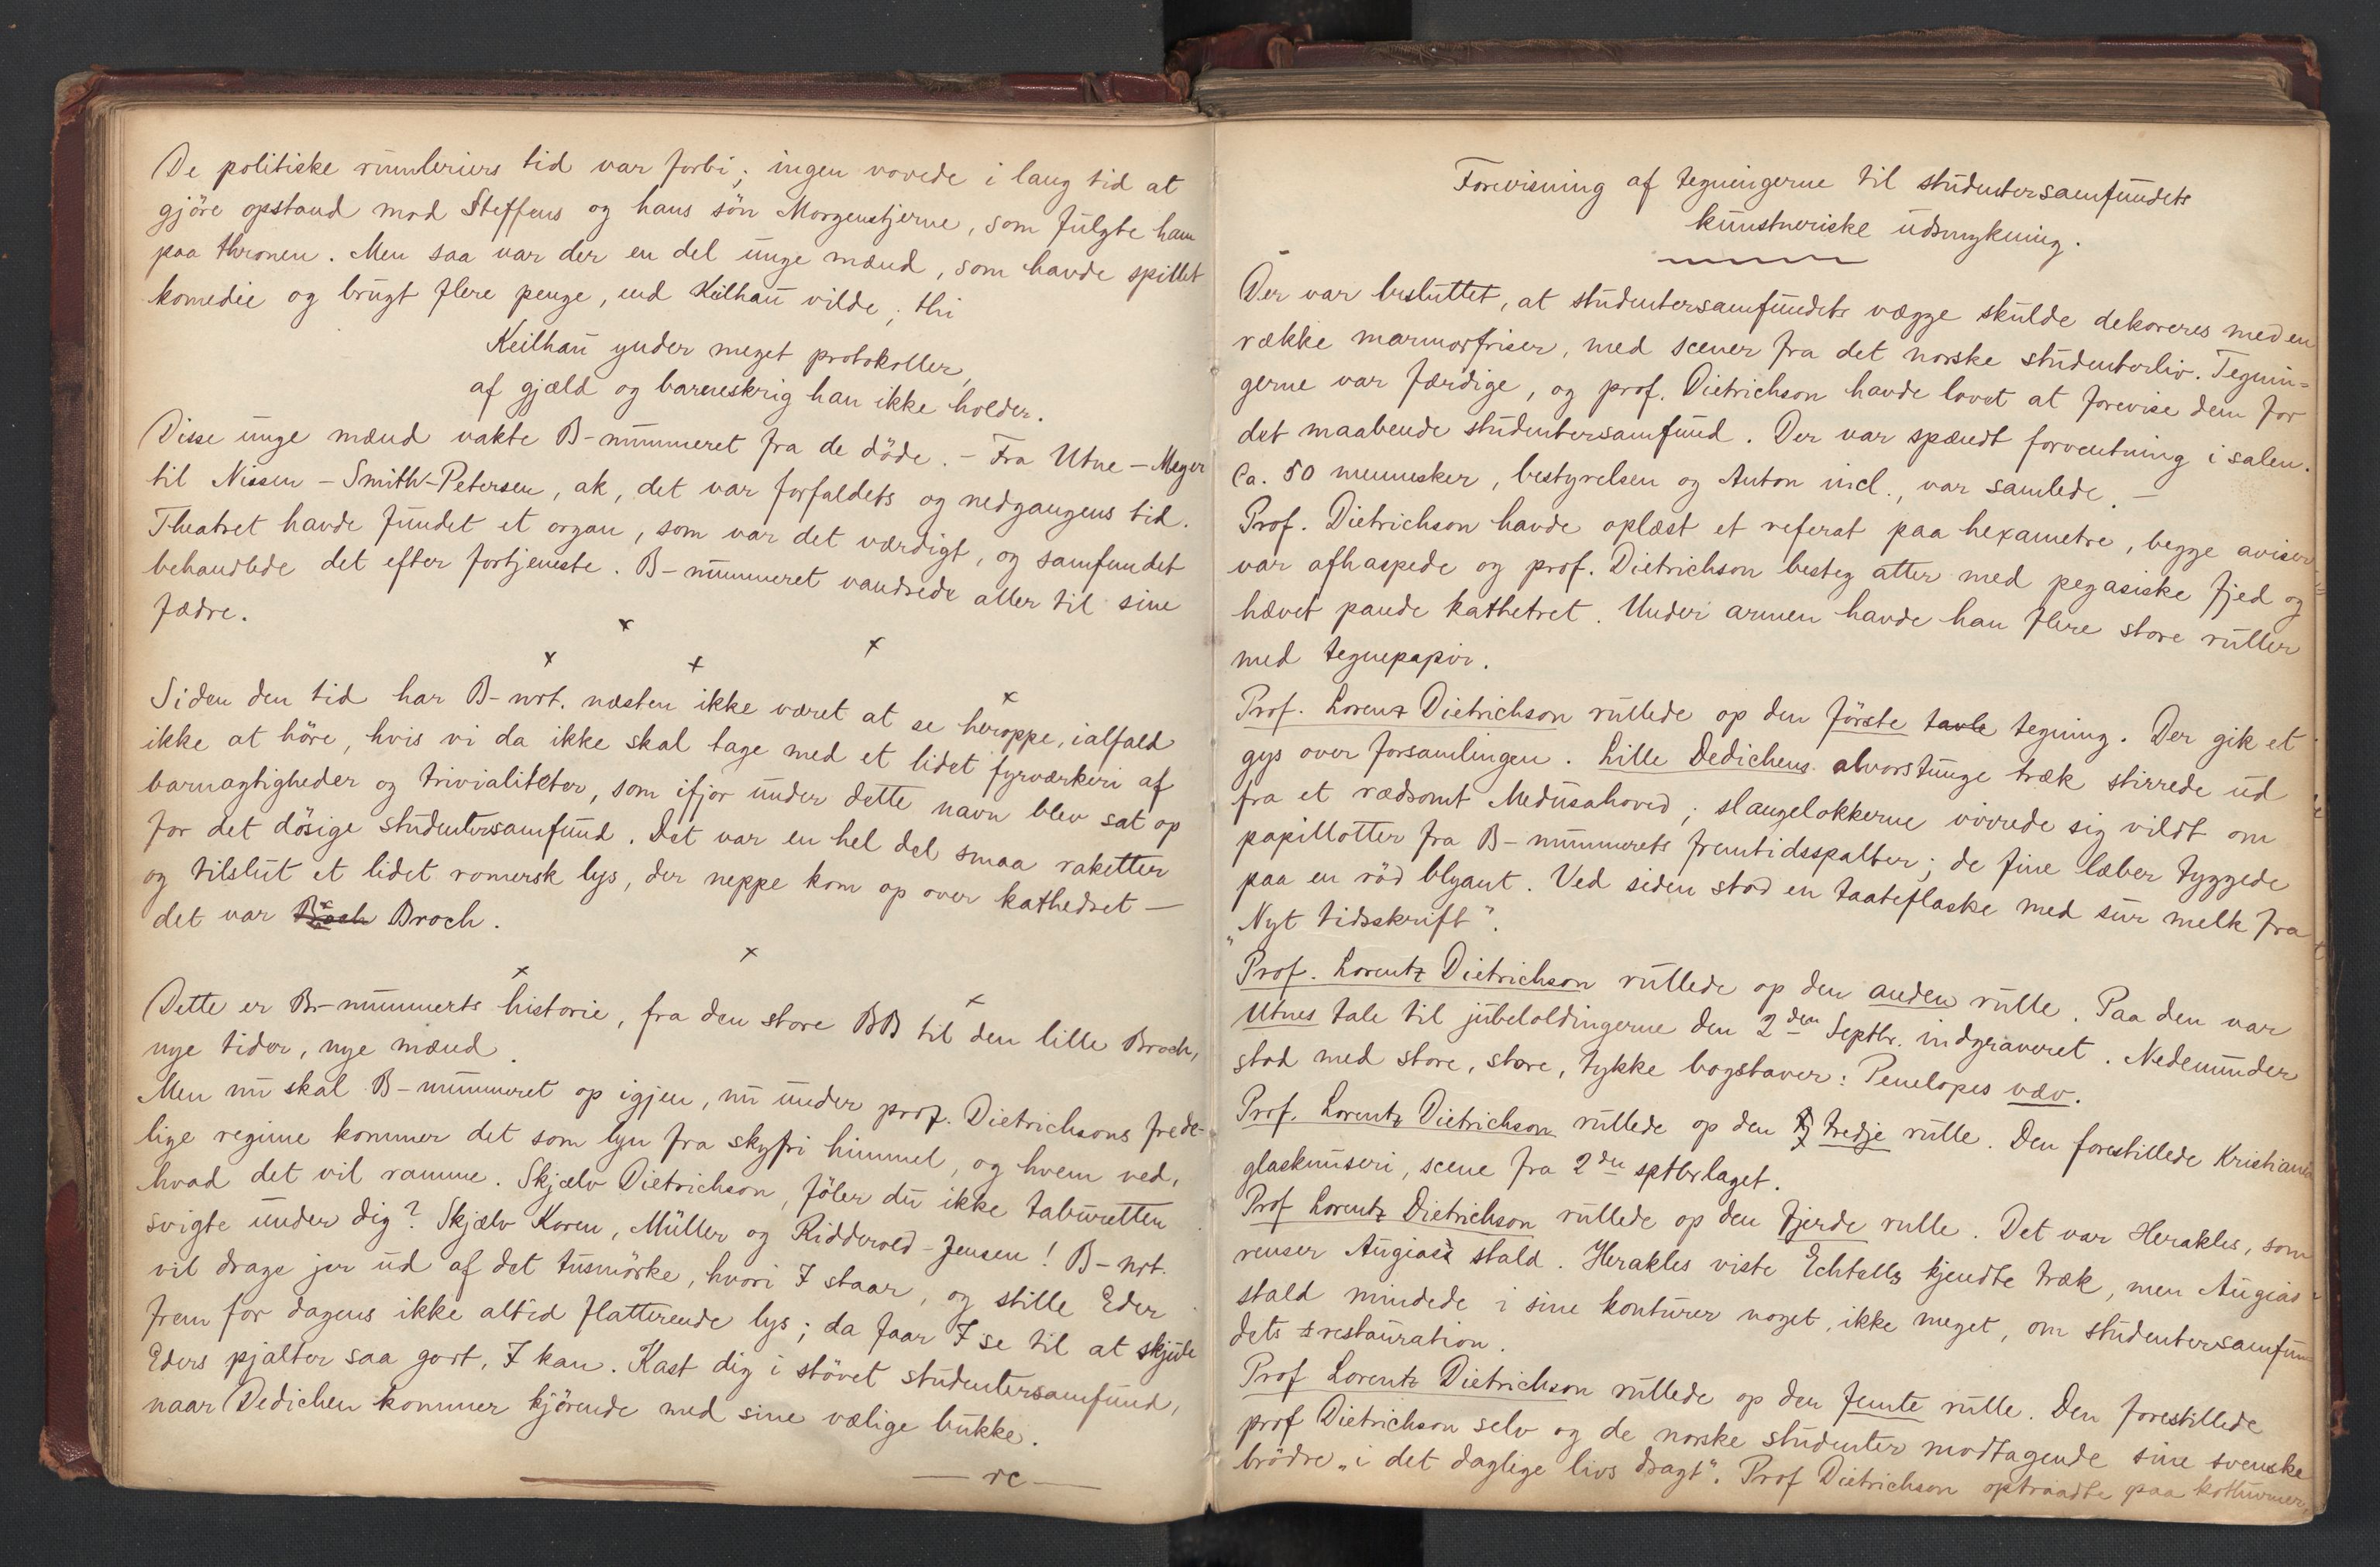 De politiske rumleriers tid var forbi; ingen vovede i lang tid at
gjöre opstand mod Steffens og hans sön Morgenstjerne, som fulgte ham
paa thronen. Men saa var der en del unge mænd, som havde spillet
komedie og brugt flere penge, end Keilhau vilde; thi
Keilhau ynder meget protokoller,
af gjæld og barneskrig han ikke holder.
Disse unge mænd vakte B-nummeret fra de döde. – Fra Utne – Meyer
til Nissen – Smith-Petersen, ak, det var forfaldets og nedgangens tid.
Theatret havde fundet et organ, som var det værdigt, og samfundet
behandlede det efter fortjeneste. B-nummeret vandrede atter til sine
fædre.
x x x x x
Siden den tid har B-nrt. næsten ikke været at se heroppe, ialfald
ikke at höre, hvis vi da ikke skal tage med et lidet fyrværkeri af
barnagtigheder og trivialiteter, som ifjor under dette navn blev sat op
for det dösige studentersamfund. Det var en hel del smaa raketter
og tilslut et lidet romersk lys, der neppe kom op over kathedret –
det var Broch.
x x x
Dette er Br-nummerts historie, fra den store BB til den lille Broch,
nye tider, nye mænd.
Men nu skal B-nummeret op igjen, nu under prof. Dietrichsons frede-
lige regime kommer det som lyn fra skyfri himmel, og hvem ved,
hvad det vil ramme. Skjælv Dietrichson, föler du ikke taburetten
svigte under dig? Skjælv Koren, Müller og Ridderold-Jensen! B-nrt.
vil drage jer ud af det tusmörke, hvori I staar, og stille Eder
frem for dagens ikke altid flatterende lys; da faar I se til at skjule
Eders pjalter saa godt, I kan. Kast dig i stövet studentersamfund,
naar Dedichen kommer kjörende med sine vælige bukke.
— rc —
Forevisning af tegningerne til studentersamfundets
kunstneriske udsmykning.
Der var besluttet, at studentersamfundets vægge skulde dekoreres med en
række marmorfriser, med scener fra det norske studenterliv. Tegnin-
gerne var færdige, og prof. Dietrichson havde lovet at forevise dem for
det maabende studentersamfund. Der var spændt forventning i salen.
Ca. 50 mennesker, bestyrelsen og Anton incl., var samlede. –
Prof. Dietrichson havde oplæst et referat paa hexametre, begge aviser
var afhaspede og prof. Dietrichson besteg atter med pegasiske fjed og
hævet pande kathetret. Under armen havde han flere store ruller
med tegnepapir.
Prof. Lorenz Dietrichson rullede op den förste tavle tegning. Der gik et
gys over forsamlingen. Lille Dedichens alvorstunge træk stirrede ud
fra et rædsomt Medusahoved; slangelokkerne vivrede sig vildt om
papillotter fra B-nummerets fremtidsspalter; de fine læber tyggede
paa en röd blyant. Ved siden stod en taateflaske med sur melk fra
„Nyt tidsskrift".
Prof. Lorentz Dietrichson rullede op den anden rulle. Paa den var
Utnes tale til jubeloldingerne den 2den Septbr. indgraveret. Nedenunder
stod med store, store, tykke bogstaver: Penelopes væv.
Prof. Lorentz Dietrichson rullede op den tredje rulle. Den forestillede Kristiania
glasknuseri, scene fra 2den sptbrlaget.
Prof Lorentz Dietrichson rullede op den fjerde rulle. Det var Herakles, som
renser Augias's stald. Herakles viste Echtells kjendte træk, men Augias
stald mindede i sine konturer noget, ikke meget, om studentersamfun-
dets restauration.
Prof Lorentz Dietrichson rullede op den femte rulle. Den forestillede
prof Dietrichson selv og de norske studenter modtagende sine svenske
brödre „i det daglige livs dragt". Prof Dietrichson optraadte paa kothurner,